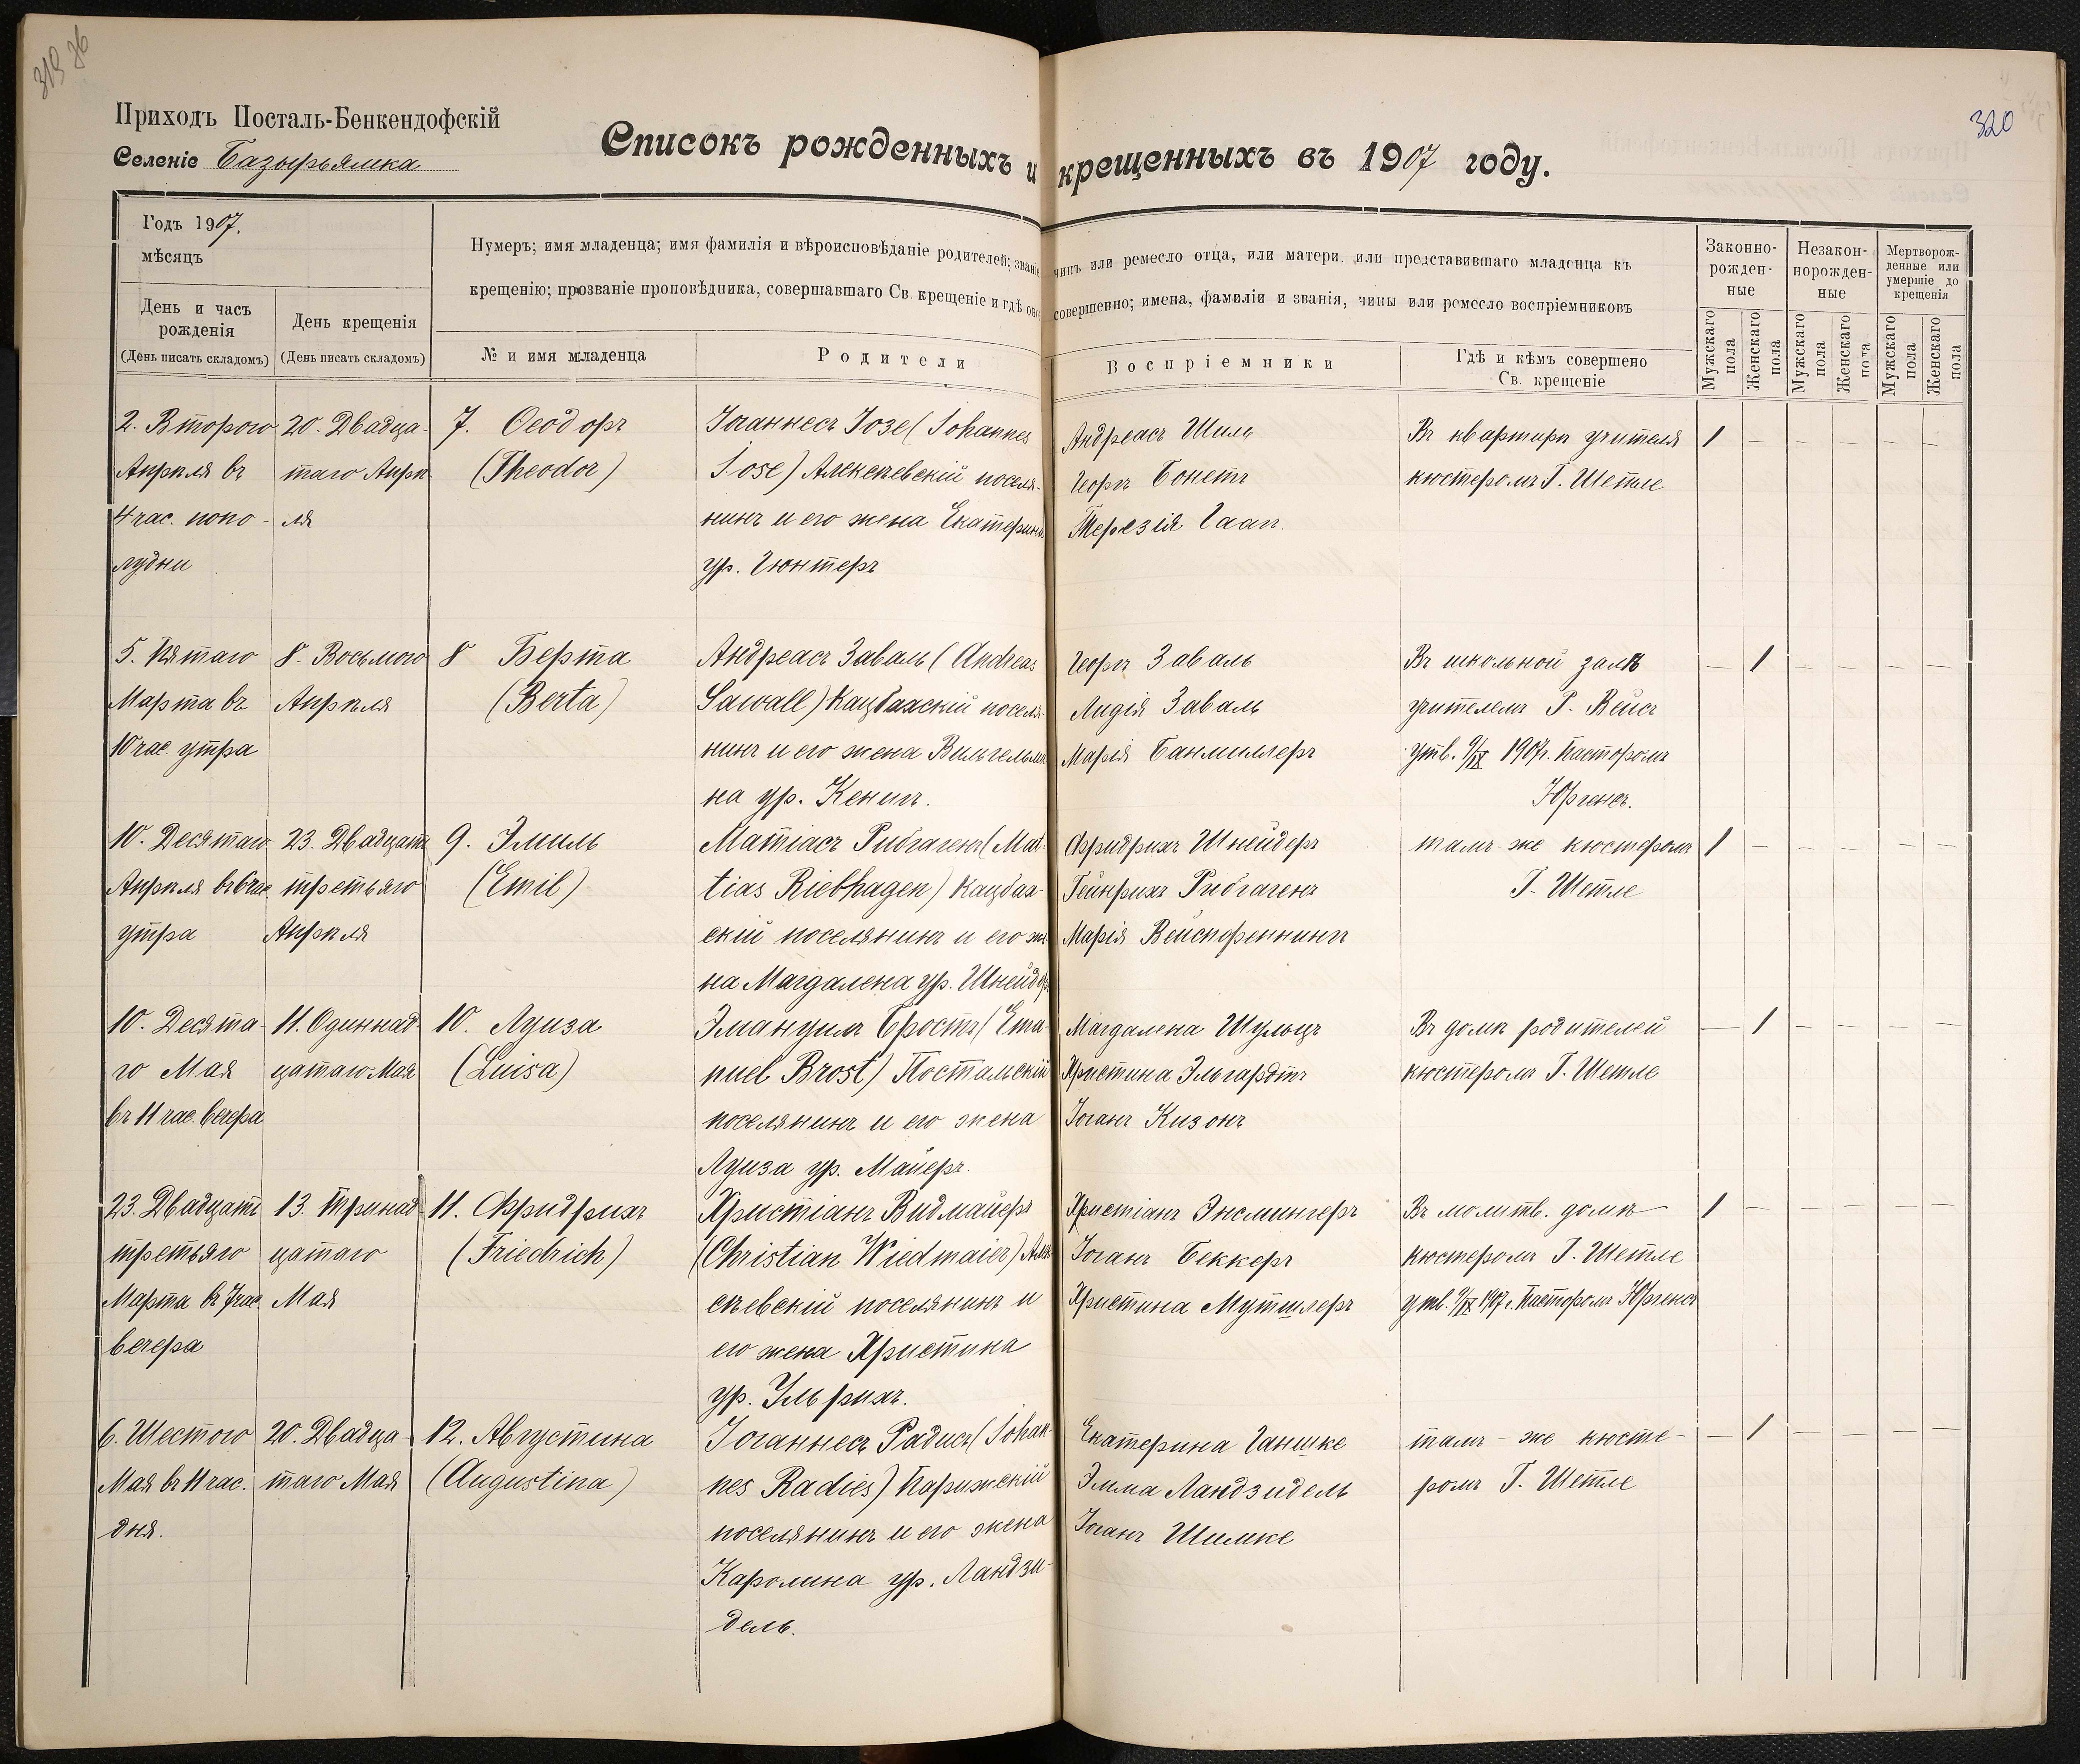 319 об
320
Приходъ Посталь-Бенкендофскій
Селеніе Базырьямка
Списокъ рожденныхъ и крещенныхъ въ 1907 году.
Годъ 1907.
мѣсяцъ
День и часъ
рожденія
(День писать складомъ)
День крещенія
(День писать складомъ)
Нумеръ; имя младенца; имя фамилія и вѣроисповѣданіе родителей; званіе чинъ или ремесло отца, или матери или представившаго младенца къ
крещенію; прозваніе проповѣдника, совершавшаго Св. крещеніе и гдѣ оно совершенно; имена, фамиліи и званія, чины или ремесло воспріемниковъ
№ и имя младенца
Родители
Воспріемники
Гдѣ и кѣмъ совершено
Св. крещеніе
Законно-
рожден-
ные
Незакон-
норожден-
ные
Мертворож-
денные или
умершіе до
крещенія
Мужскаго пола
Женскаго пола
Мужскаго пола
Женскаго пола
Мужскаго пола
Женскаго пола
2. Второго
Апрѣля въ
4 час. попо-
лудни
20. Двадца-
таго Апрѣ-
ля
7. Ѳеодоръ
(Theodor)
Іоганнесъ Іозе (Johannes
Jose) Алексѣевскій поселя-
нинъ и его жена Екатерина
ур. Гюнтеръ
Андреасъ Шиль
Георгъ Бонетъ
Терезія Гаагъ.
Въ квартирѣ учителя
кюстеромъ Г. Шетле
1 — — — — —
5. Пятаго
Марта въ
10 час утра
8. Восьмого
Апрѣля
8 Берта
(Berta)
Андреасъ Заваль (Andreas
Sawall) Кацбахскій поселя-
нинъ и его жена Вильгельми-
на ур. Кенигъ.
Георгъ Заваль
Лидія Заваль
Марія Банмиллеръ
Въ школьной залѣ
учителемъ Г. Вейсъ
утв. 9/IX 1907г. Пасторомъ
Юргенсъ.
— 1 — — — —
10. Десятаго
Апрѣля въ 6 час.
утра
23. Двадцать
третьяго
Апрѣля
9. Эмиль
(Emil)
Матіасъ Рибгагенъ (Mat-
tias Riebhagen) Кацбах-
скій поселянинъ и его же-
на Магдалена ур. Шнейдеръ
Фридрихъ Шнейдеръ
Гейнрихъ Рибгагенъ
Марія Вейспфеннингъ
тамъ-же кюстеромъ
Г. Шетле
1 — — — — —
10. Десята-
го Мая
въ 11 час. вечера
11. Одиннад-
цатаго Мая
10. Луиза
(Luisa)
Эмануилъ Бростъ (Ema-
nuel Brost) Постальскій
поселянинъ и его жена
Луиза ур. Майеръ.
Магдалена Шульцъ
Христина Эльгардтъ
Іоганъ Кизонъ
Въ домѣ родителей
кюстеромъ Г. Шетле
— 1 — — — —
23. Двадцать
третьяго
Марта въ 7 час.
вечера
13. Тринад-
цатаго
Мая
11. Фридрихъ
(Friedrich)
Христіанъ Видмайеръ
(Christian Wiedmaier) Алек-
сѣевскій поселянинъ и
его жена Христина
ур. Ульрихъ.
Христіанъ Энсмингеръ
Іоганъ Беккеръ
Христина Мутшлеръ
Въ молитв. домѣ
кюстеромъ Г. Шетле
утв. 9/IX 1907г. Пасторомъ Юргенсъ
1 — — — — —
6. Шестого
Мая въ 11 час.
дня.
20. Двадца-
таго Мая
12. Августина
(Augustina)
Іоганнесъ Радисъ (Johan-
nes Radies) Парижскій
поселянинъ и его жена
Каролина ур. Ландзи-
дель.
Екатерина Ганшке
Эмма Ландзидель
Іоганъ Шимке
тамъ-же кюсте-
ромъ Г. Шетле
— 1 — — — —